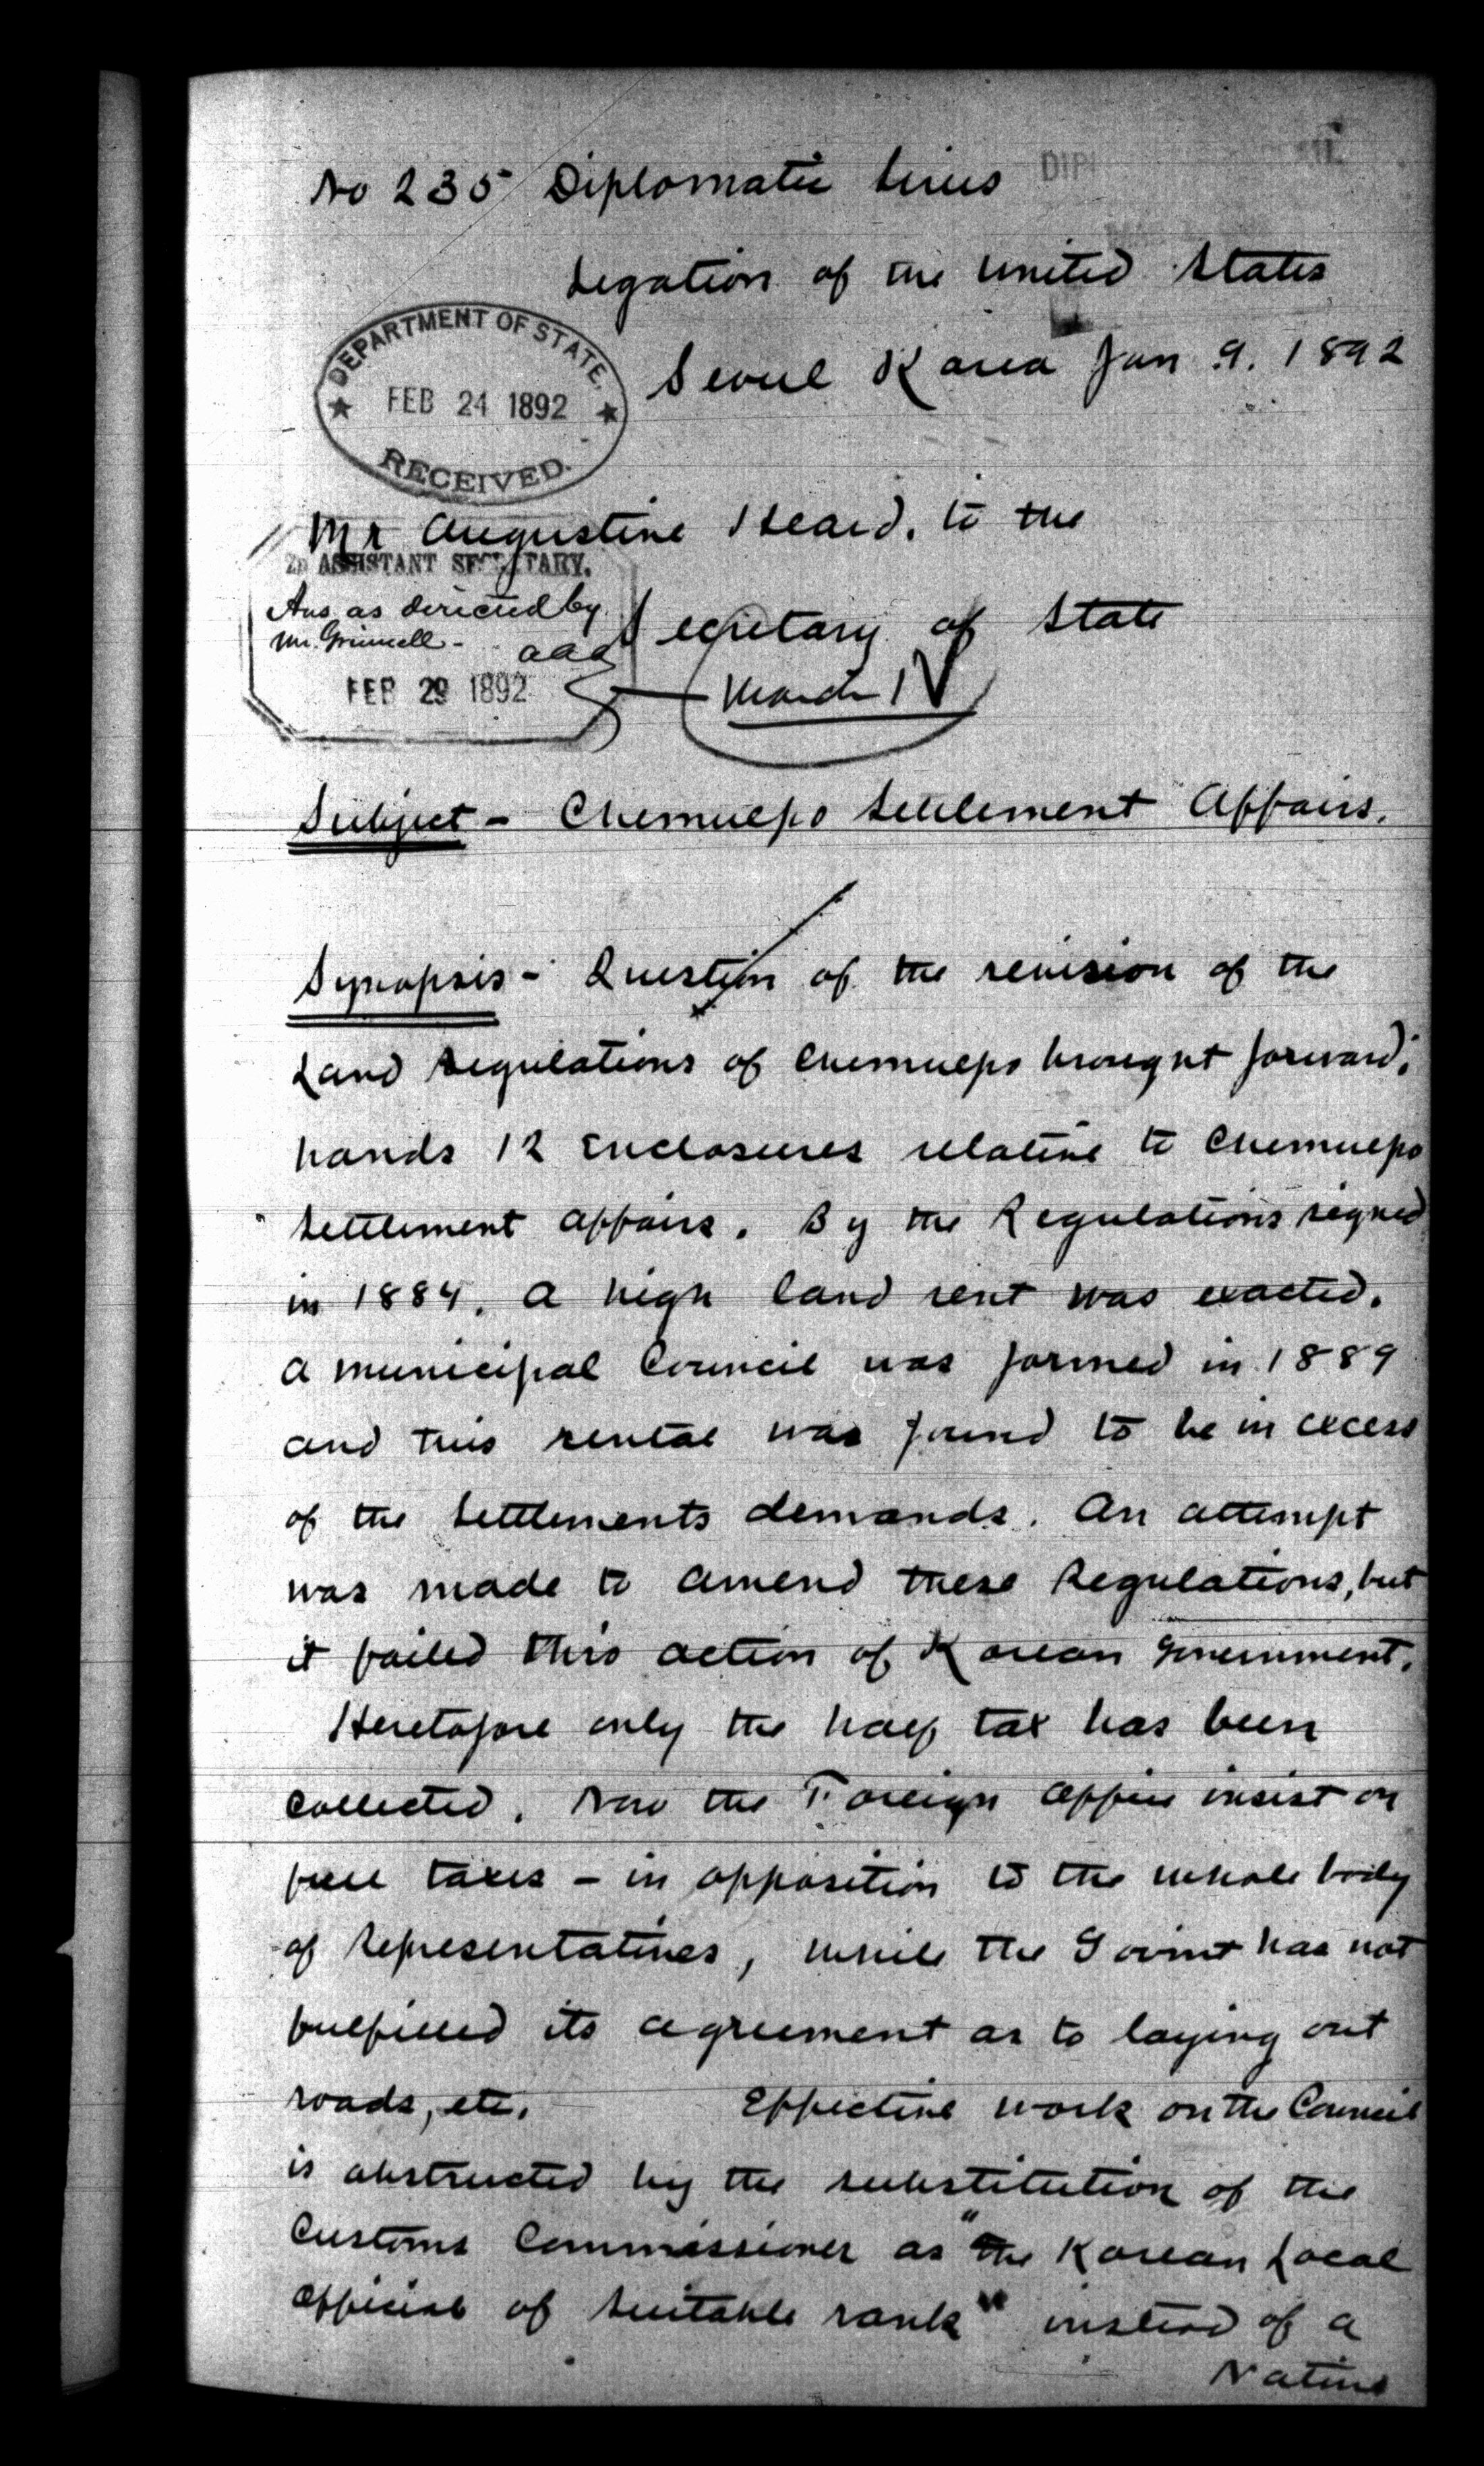 No 235 Diplomatic Series
DIPL
Legation of the United States
Seoul Korea Jan 9. 1892
DEPARTMENT OF STATE,
FEB 24 1892
RECEIVED.
Mr Augustine Heard, to the
2D ASSISTANT SECRETARY.
Ans as directed by
Mr. Grinnell - aaa
Secretary of State
FEB 29 1892
March 1
Subject - Chemulpo Settlement Affairs.
Synopsis - Question of the revision of the
Land Regulations of Chemulpo brought forward;
hands 12 enclosures relative to Chemulpo
Settlement affairs. By the Regulations signed
in 1884, a high land rent was exacted.
A municipal Council was formed in 1889
and this rental was found to be in excess
of the Settlements demands. An attempt
was made to amend these Regulations, but
it failed thro action of Korean Government.
Heretofore only the half tax has been
collected. Now the Foreign Office insist on
full taxes - in opposition to the whole body
of Representatives, while the Govmt has not
fulfilled its agreement as to laying out
roads, etc. Effective work on the Council
is obstructed by the substitution of the
Customs Commissioner as "the Korean Local
Official of suitable rank" instead of a
Native